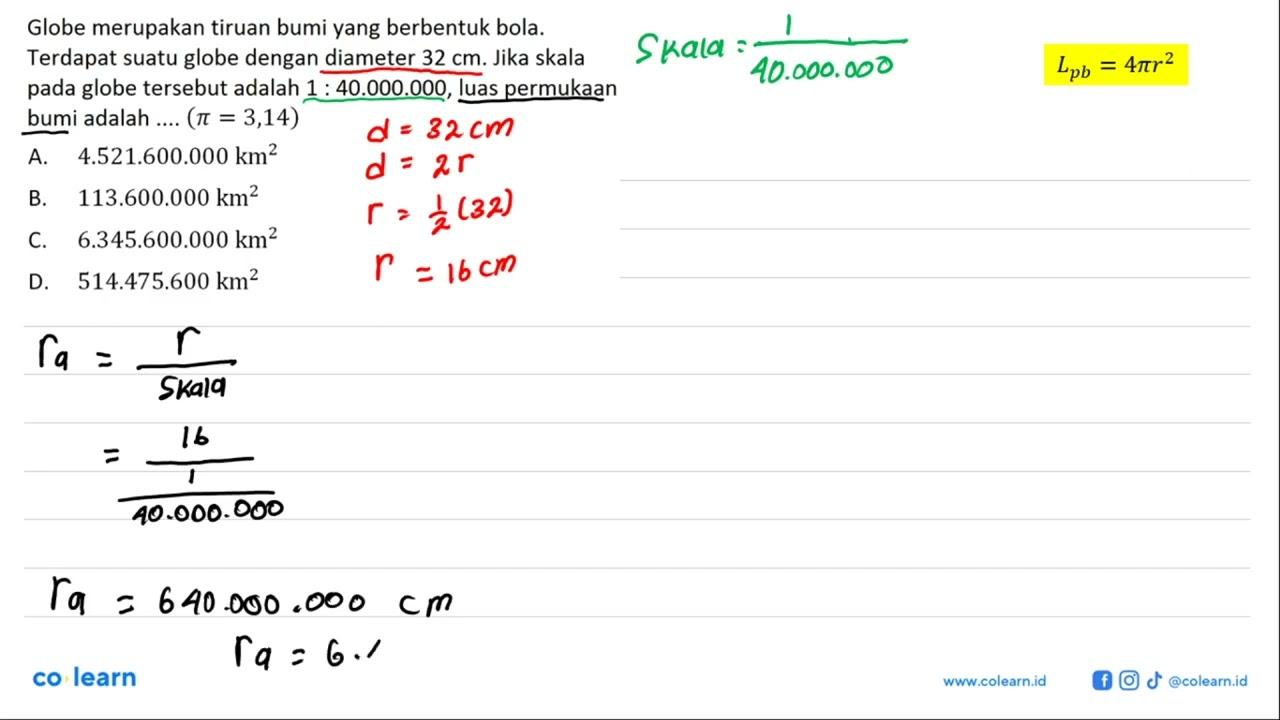 Globe merupakan tiruan bumi yang berbentuk bola.
Terdapat suatu globe dengan diameter 32 cm. Jika skala
pada globe tersebut adalah 1 : 40.000.000, luas permukaan
bumi adalah .... (π = 3,14)
A. 4.521.600.000 km²
B. 113.600.000 km²
C. 6.345.600.000 km²
D. 514.475.600 km²
d = 32 cm
d = 2r
r = 1/2 (32)
r = 16 cm
Skala = 1/40.000.000
L_pb = 4πr²
ra = r/Skala
= 16/(1/40.000.000)
ra = 640.000.000 cm
ra = 6.
co learn
www.colearn.id
@colearn.id